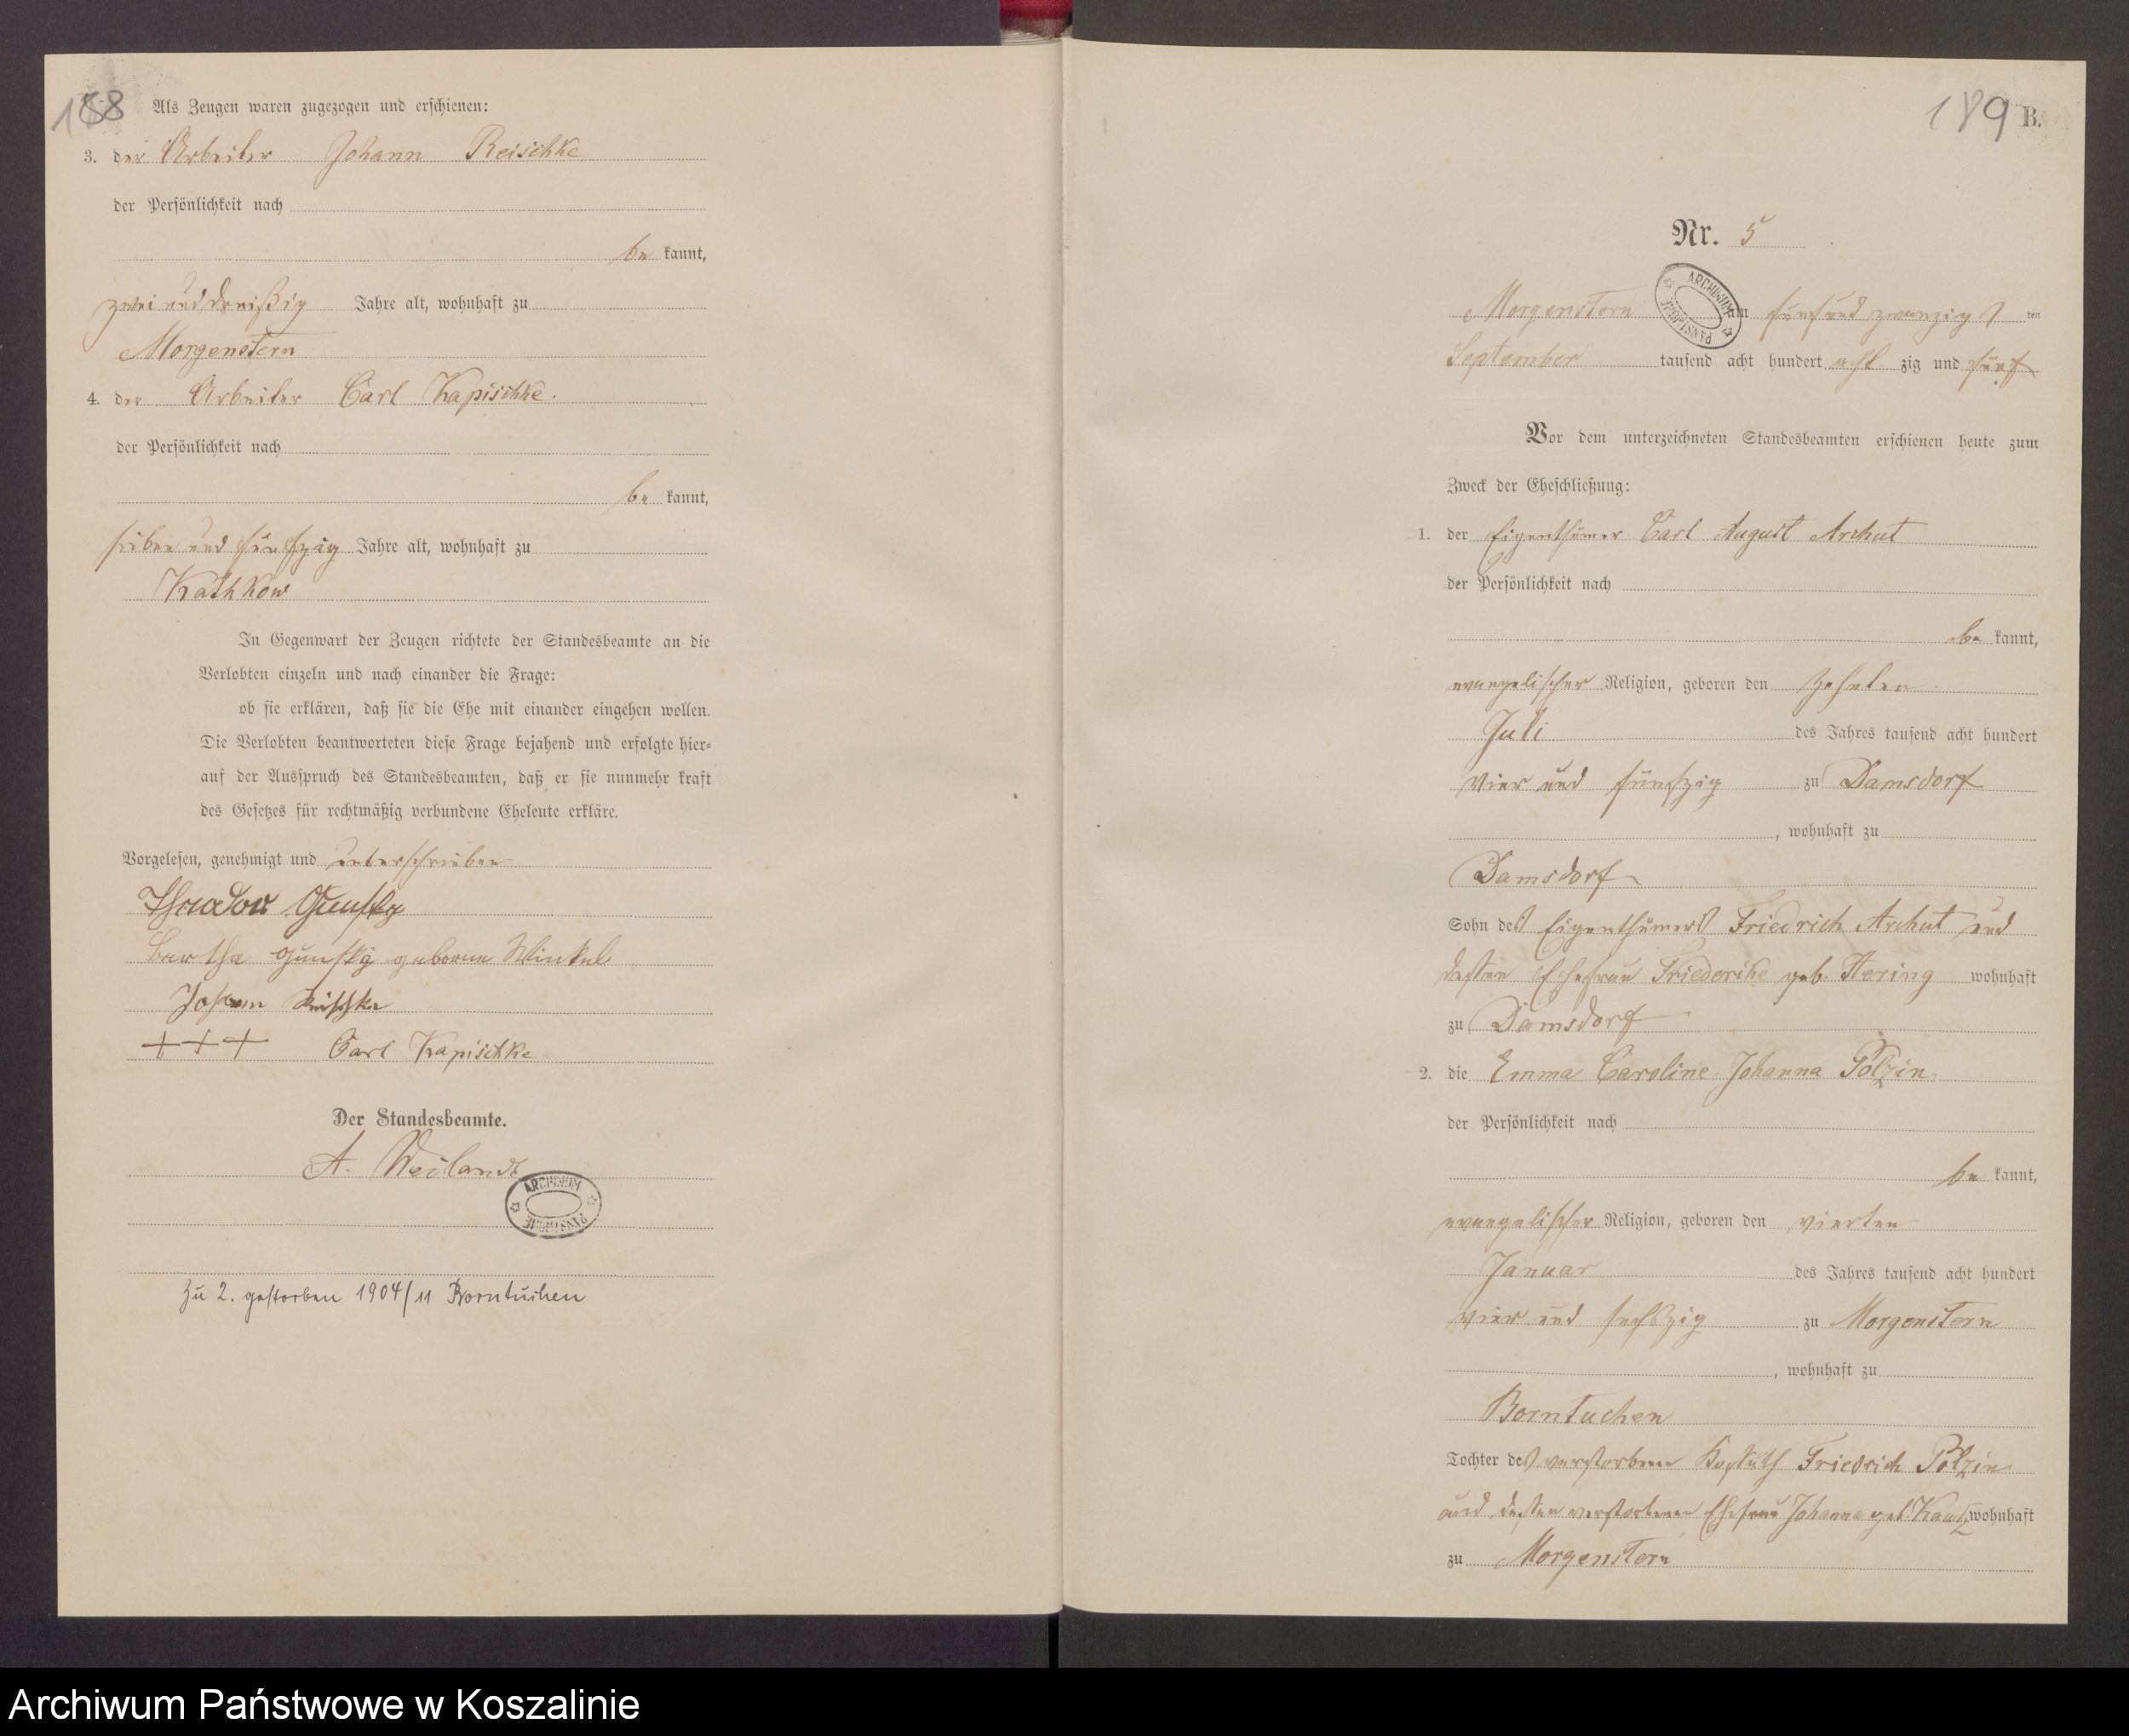 188
Als Zeugen waren zugezogen und erschienen:
3. der Arbeiter Johann Reischke
der Persönlichkeit nach
be kannt,
zwei und dreißig Jahre alt, wohnhaft zu
Morgenstern
4. der Arbeiter Carl Kapischke.
der Persönlichkeit nach
be kannt,
sieben und fünfzig Jahre alt, wohnhaft zu
Kathkow
In Gegenwart der Zeugen richtete der Standesbeamte an die
Verlobten einzeln und nach einander die Frage:
ob sie erklären, daß sie die Ehe mit einander eingehen wollen.
Die Verlobten beantworteten diese Frage bejahend und erfolgte hier-
auf der Ausspruch des Standesbeamten, daß er sie nunmehr kraft
des Gesetzes für rechtmäßig verbundene Eheleute erkläre.
Vorgelesen, genehmigt und unterschrieben
Theodor
Bertha geborene Winkel
Johann Reischke
+++ Carl Kapischke
Der Standesbeamte.
A. Weilandt
ARCHIWUM PAŃSTWOWE
Zu 2. gestorben 1904/11 Borntuchen
189 B.
Nr. 5
ARCHIWUM PAŃSTWOWE
Morgenstern am fünf und zwanzigs ten
September tausend acht hundert acht zig und fünf
Vor dem unterzeichneten Standesbeamten erschienen heute zum
Zweck der Eheschließung:
1. der Eigenthümer Carl August Archut
der Persönlichkeit nach
be kannt,
evangelischer Religion, geboren den zehnten
Juli des Jahres tausend acht hundert
vier und fünfzig zu Damsdorf
, wohnhaft zu
Damsdorf
Sohn des Eigenthümers Friedrich Archut und
dessen Ehefrau Friederike geb. Hering wohnhaft
zu Damsdorf
2. die Emma Caroline Johanna Polzin
der Persönlichkeit nach
be kannt,
evangelischer Religion, geboren den vierten
Januar des Jahres tausend acht hundert
vier und sechszig zu Morgenstern
, wohnhaft zu
Borntuchen
Tochter des verstorbenen Friedrich Polzin
und dessen verstorbenen Ehefrau Johanna geb. wohnhaft
zu Morgenstern
Archiwum Państwowe w Koszalinie